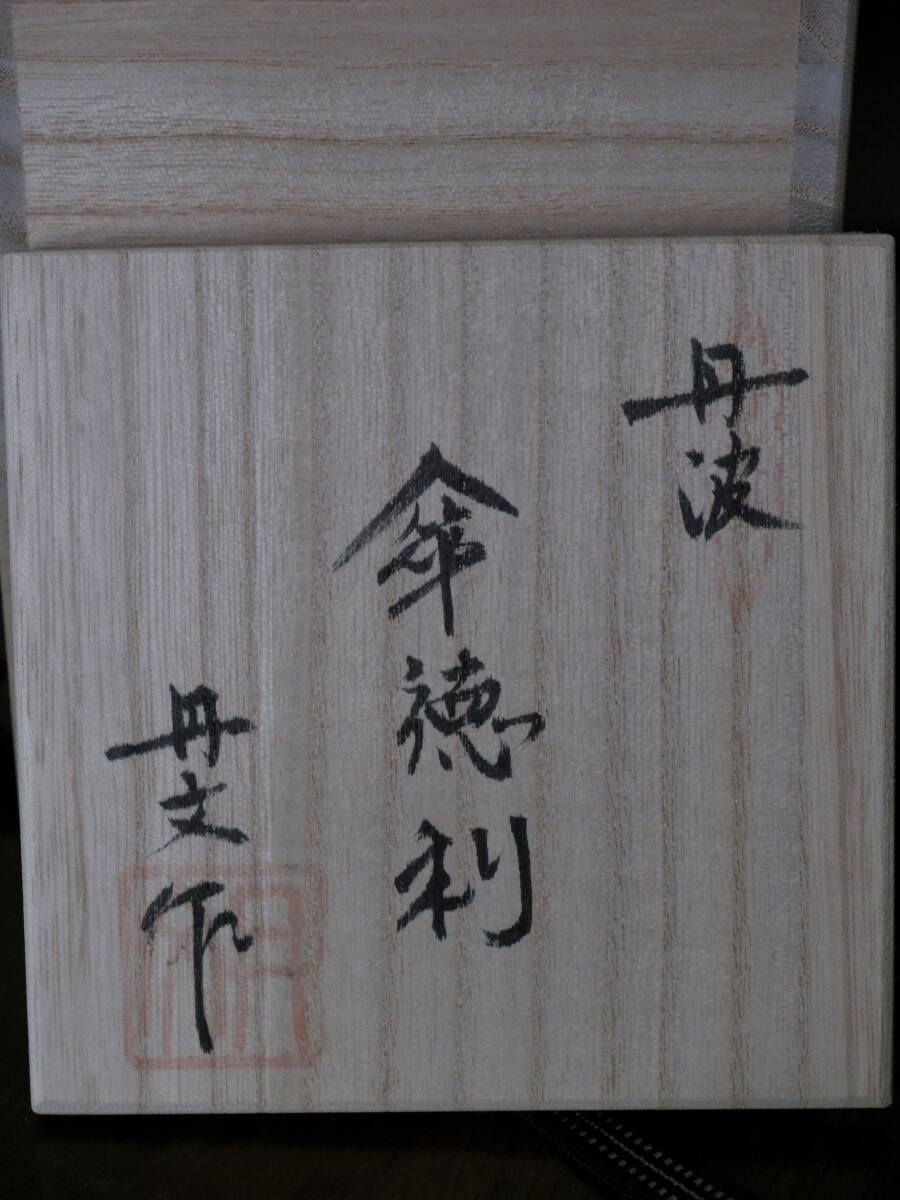 丹波
傘徳利
丹文作